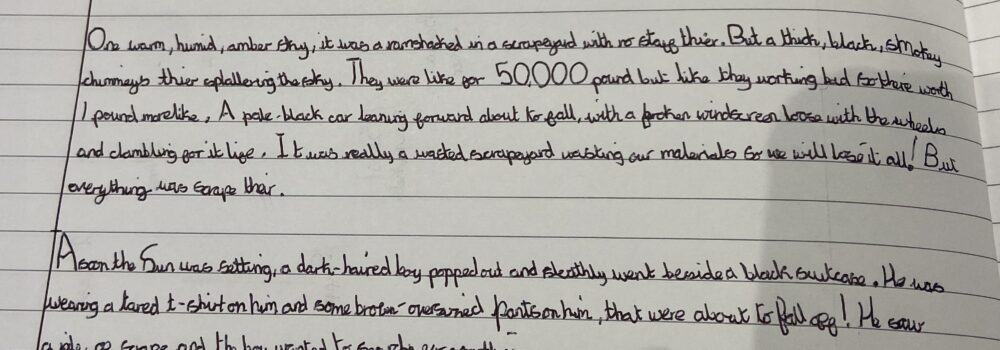 One warm, humid, amber sky, it was a ramshacked in a scrapeyard with no stays thier. But a thick, black, smokey
chimneys thier splallering the sky. They were like for 50,000 pound but like they working bad so there worth
1 pound more like, A pale-black car leaning forward about to fall, with a broken windscreen loose with the wheels
and clambling for it life. It was really a wasted scrapeyard wasting our materials so we will lose it all! But
everything was scrape thar.
A soon the Sun was setting, a dark-haired boy popped out and sleathly went beside a black suitcase. He was
wearing a tared t-shirt on him and some brown pants on him, that were about to fall off! He saw